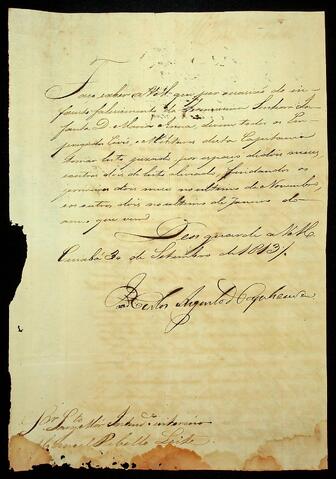 Faço saber a VM que por occazião do in-
fausto falecimento da Serenissima Senhora In-
fanta D. Maria Anna, devem todos os Em-
pregados Civis e Militares desta Capitania
tomar luto pezado por espaço de dois mezes,
e outros dois de luto aliviado, findando os
primeiros dous mezes no ultimo de Novembro,
e os outros dois no ultimo de Janeiro do
anno que vem.
Deos guarde a VM
Cuiabá 30 de Setembro de 1813
João Carlos Augusto d'Oeynhausen
Snr
Leite